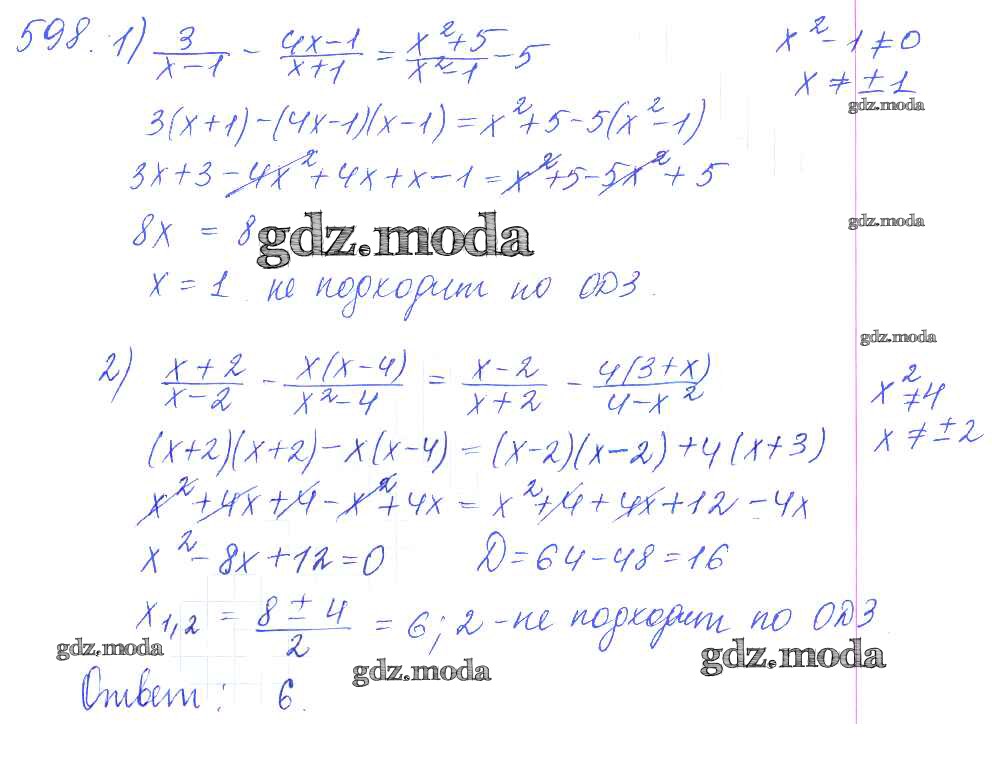 598. 1) 3/(x-1) - (4x-1)/(x+1) = (x²+5)/(x²-1) - 5
x²-1≠0
x ≠ ±1
gdz.moda
3(x+1)-(4x-1)(x-1)=x²+5-5(x²-1)
3x+3-4x²+4x+x-1=x²+5-5x²+5
8x = 8
gdz.moda
gdz.moda
x = 1 не подходит по ОДЗ.
gdz.moda
2) (x+2)/(x-2) - x(x-4)/(x²-4) = (x-2)/(x+2) - 4(3+x)/(4-x²)
x²≠4
x ≠ ±2
(x+2)(x+2)-x(x-4)=(x-2)(x-2)+4(x+3)
x²+4x+4-x²+4x = x²+4+4x+12-4x
x²-8x+12=0 D=64-48=16
x1,2 = (8±4)/2 = 6; 2 - не подходит по ОДЗ
gdz.moda
gdz.moda
gdz.moda
Ответ: 6.